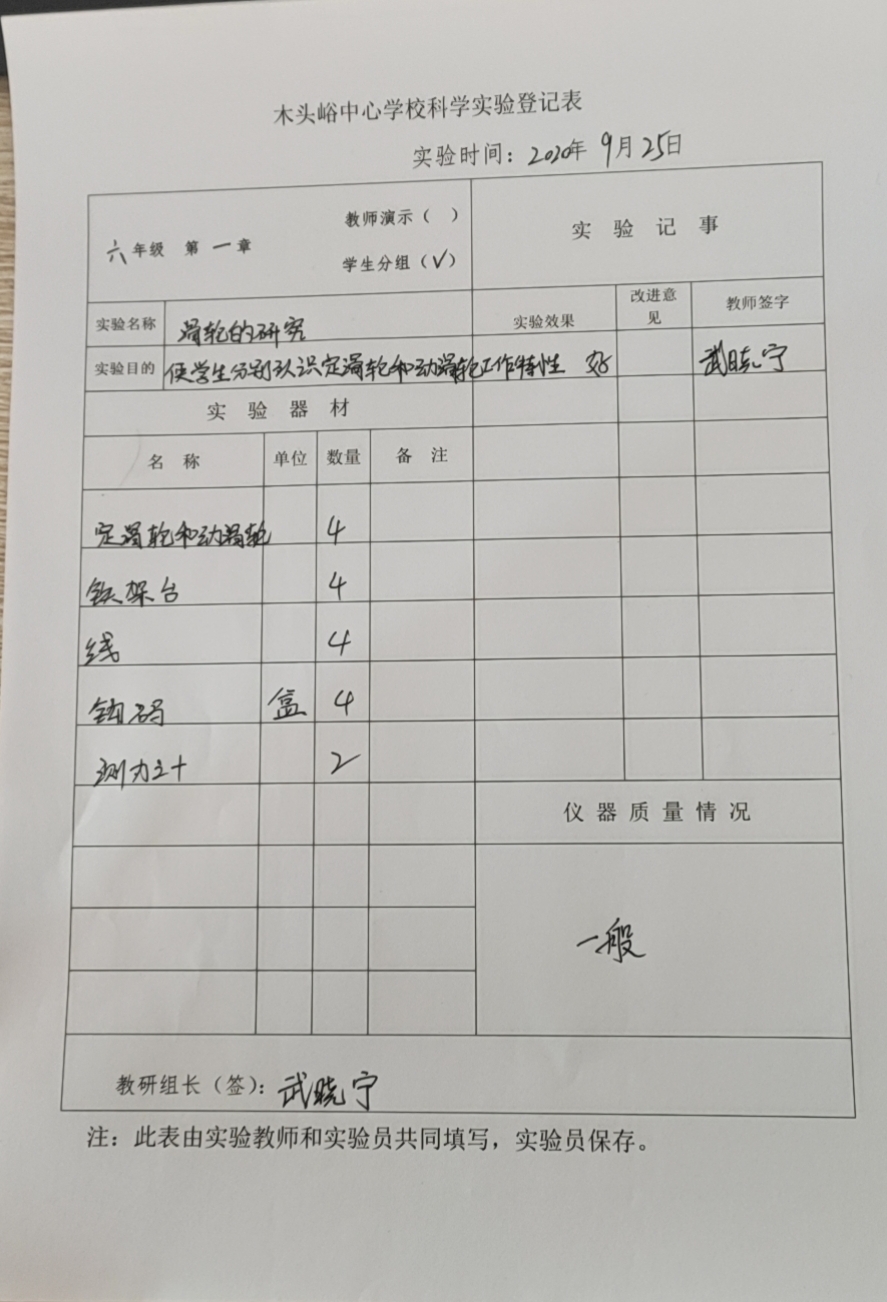 木头峪中心学校科学实验登记表
实验时间：2020年 9月 25日
六年级 第一章
教师演示（ ）
学生分组（√）
实验记事
实验名称 滑轮的研究
实验效果 改进意见 教师签字
实验目的 使学生分别认识定滑轮和动滑轮工作特性 好 武晓宁
实验器材
名称 单位 数量 备注
定滑轮和动滑轮 4
铁架台 4
线 4
钩码 盒 4
测力计 2
仪器质量情况
一般
教研组长（签）：武晓宁
注：此表由实验教师和实验员共同填写，实验员保存。